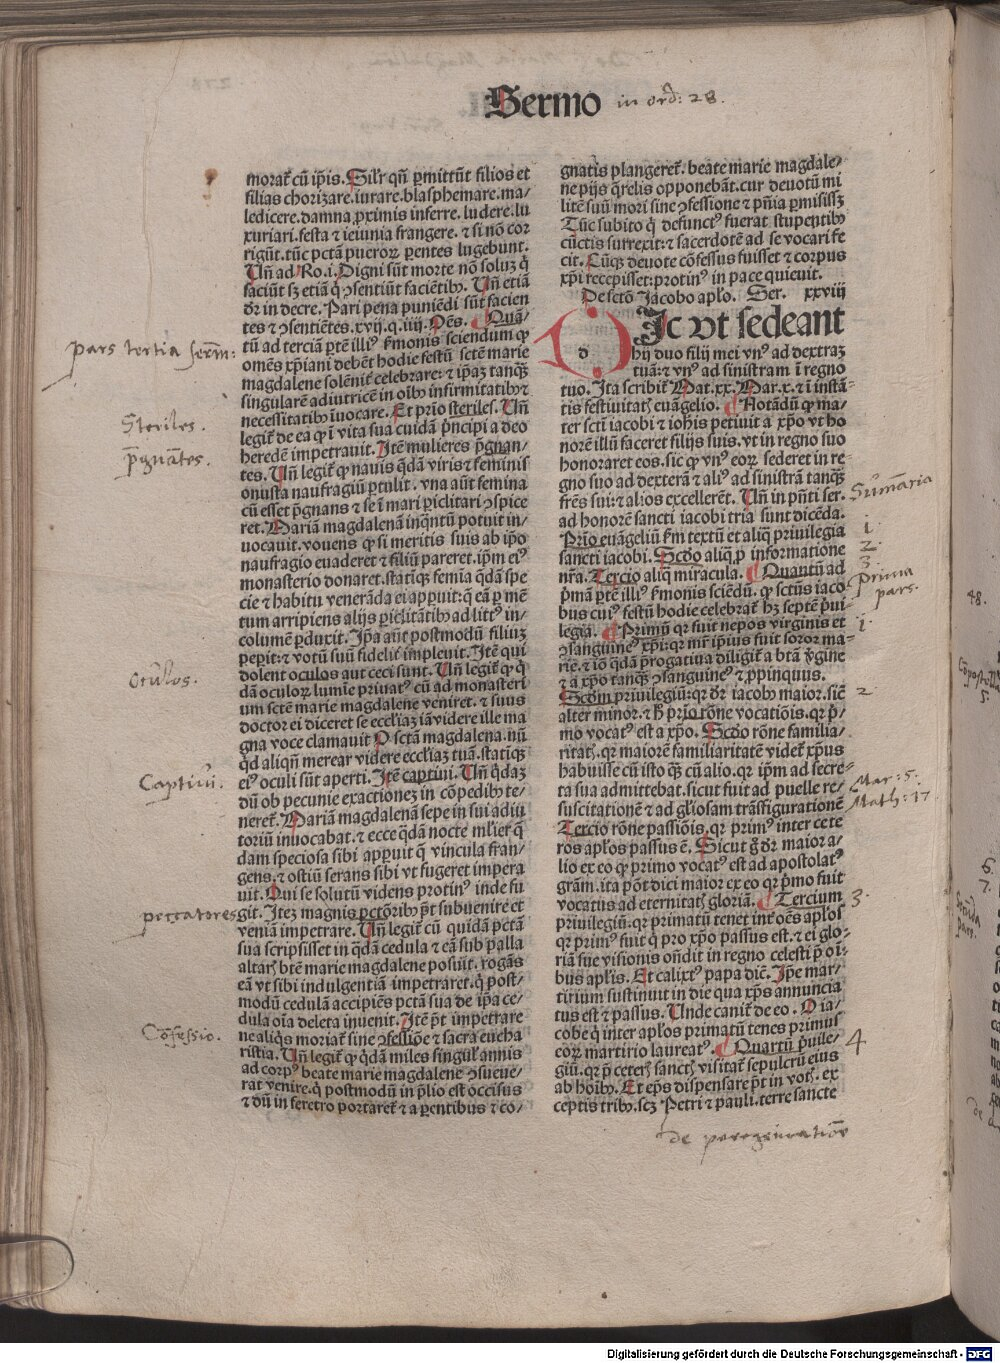 Sermo in ord: 28.
morat͛ cū ip̄is. Sil'r qn̄ ꝑmittūt filios et
filias chorizare. iurare. blasphemare. ma/
ledicere. damna ꝓximis inferre. ludere. lu
xuriari. festa ⁊ ieiunia frangere. ⁊ si nō cor
rigūt. tūc pctā pueroꝝ ꝑentes lugebunt.
Un̄ ad Ro. i. Digni sūt morte nō soluꝫ q̇
faciūt sꝫ etiā q̇ ↄsentiūt faciētibꝰ. Un̄ etiā
dr̄ in decre. Pari pena puniēdi sūt facien
tes ⁊ ↄsentiētes. xvij. q. iiij. Oēs. Quā/
tū ad terciā ꝑtē illiꝰ s̄monis sciendum ꝙ
omēs xp̄iani debēt hodie festū sctē marie
magdalene solēnit͛ celebrare: ⁊ ip̄aꝫ tanqꝫ
singularē adiutricē in oībꝰ infirmitatibꝰ ⁊
necessitatibꝰ īuocare. Et prio steriles. Un̄
legit͛ de ea ꝙ ī vita sua cuidā pncipi a deo
heredē impetrauit. Itē mulieres p̄gnan/
tes. Un̄ legit͛ ꝙ nauis qdā viris ⁊ feminis
onusta naufragiū ꝑtulit. vna aūt femina
cū esset p̄gnans ⁊ se ī mari ꝑiclitari ↄspice
ret. Mariā magdalenā inqntū potuit in/
uocauit. vouens ꝙ si meritis suis ab ip̄o
naufragio euaderet ⁊ filiū pareret. ip̄m eiꝰ
monasterio donaret. statiqꝫ femīa qdā spe
cie ⁊ habitu venerāda ei apꝑuit: q̄ eā ꝑ mē
tum arripiens alijs ꝑiclitātibꝰ ad littꝰ in/
columē ꝑduxit. Ip̄a aūt postmodū filiuꝫ
peꝑit: ⁊ votū suū fidelit͛ impleuit. Itē qui
dolent oculos aut ceci sunt. Un̄ legit͛ ꝙ q̇
dā oculoꝝ lumīe priuatꝰ cū ad monasteri
um sctē marie magdalene veniret. ⁊ suus
doctor ei diceret se eccl'iaꝫ iā videre ille ma
gna voce clamauit O sctā magdalena. nū
qd aliqn̄ merear videre eccl'iaꝫ tuā. statiqꝫ
eiꝰ oculi sūt aperti. Itē captiui. Un̄ q̇daꝫ
dū ob pecunie exactioneꝫ in cōpedibꝰ te/
neret͛. Mariā magdalenā sepe in sui adiu
toriū inuocabat. ⁊ ecce qdā nocte ml'ier q̄
dam speciosa sibi apꝑuit q̄ vincula fran/
gens. ⁊ ostiū serans sibi vt fugeret impera
uit. Qui se solutū videns protinꝰ inde fu
git. Iteꝫ magnis pctōribꝰ pt subuenire et
veniā impetrare. Un̄ legit͛ cū quidā pctā
sua scripsisset in qdā cedula ⁊ eā sub palla
altarꝭ btē marie magdalene posuit. rogās
eā vt sibi indulgentiā impetraret. q̇ post/
modū cedulā accipiēs pctā sua de ip̄a ce/
dula oīa deleta inuenit. Itē pt impetrare
ne aliqs moriat͛ sine ↄfessiōe ⁊ sacra eucha
ristia. Un̄ legit͛ ꝙ q̇dā miles singul' annis
ad corpꝰ beate marie magdalene ↄsueue/
rat venire. q̇ postmodū in p̄lio est occisus
⁊ dū in feretro portaret͛ ⁊ a ꝑentibus ⁊ co/
gnatis plangeret͛. beate marie magdale/
ne pijs q̄relis opponebāt. cur deuotū mi
litē suū mori sine ↄfessione ⁊ pn̄ia ꝑmisissꝫ
Tūc subito q̇ defunctꝰ fuerat stupentibꝰ
cūctis surrexit: ⁊ sacerdotē ad se vocari fe
cit. Cūqꝫ deuote cōfessus fuisset ⁊ corpus
xp̄i recepisset: protinꝰ in pace quieuit.
De sctō Jacobo apl'o. Ser. xxviij
DIc vt sedeant
d
hij duo filij mei vnꝰ ad dextraꝫ
tuā: ⁊ vnꝰ ad sinistram ī regno
tuo. Ita scribit͛ Mat. xx. Mar. x. ⁊ ī instā-
tis festiuitatꝭ euāgelio. Notādū ꝙ ma/
ter scti iacobi ⁊ iohīs petiuit a xp̄o vt ho
norē illū faceret filijs suis. vt in regno suo
honoraret eos. sic ꝙ vnꝰ eoꝝ sederet in re/
gno suo ad dexterā ⁊ aliꝰ ad sinistrā tanqꝫ
fr̄es sui: ⁊ alios excellerēt. Un̄ in pn̄ti ser.
ad honorē sancti iacobi tria sunt dicēda.
Prio euāgeliū s̄m textū et aliq̄ priuilegia
sancti iacobi. Scdo aliq̄ ꝓ informatione
nr̄a. Tercio aliq̄ miracula. Quantū ad
p̄mā ꝑtē illiꝰ s̄monis sciēdū. ꝙ sctus iaco
bus cuiꝰ festū hodie celebrat͛ hꝫ septē p̄ui/
legia. Primū qr fuit nepos virginis et
ↄsanguineꝰ xp̄i: qr mr̄ ip̄ius fuit soror ma-
rie. ⁊ iō qdā p̄rogatiua diligit͛ a btā ꝟgine
⁊ a xp̄o tanqꝫ ↄsanguineꝰ ⁊ ꝓpinquus.
Scdm priuilegiū: qr dr̄ iacobꝰ maior. sic̄
alter minor. ⁊ h̄ prio rōne vocatiōis. qr p̄/
mo vocatꝰ est a xp̄o. Scdo rōne familia/
ritatꝭ. qr maiorē familiaritatē videt͛ xp̄us
habuisse cū isto qꝫ cū alio. qr ip̄m ad secre/
ta sua admittebat. sicut fuit ad puelle re/
suscitationē ⁊ ad gl'iosam trāsfigurationē
Tercio rōne passiōis. qr primꝰ inter cete
ros apl'os passus ē. Sicut g̊ dr̄ maior a/
lio ex eo ꝙ primo vocatꝰ est ad apostolatꝰ
grām. ita pōt dici maior ex eo qr p̄mo fuit
vocatus ad eternitatꝭ gloriā. Tercium
priuilegiū. qr primatū tenet int͛ oēs apl'os
qr primꝰ fuit q̇ pro xp̄o passus est. ⁊ ei glo/
riā sue visionis on̄dit in regno celesti p̄ oī:
bus apl'is. Et calixtꝰ papa dic̄. Ip̄e mar/
tirium sustinuit in die qua xp̄s annuncia
tus est ⁊ passus. Unde canit͛ de eo. O ia/
cobe q̇ inter apl'os primatū tenes primus
eoꝝ martirio laureatꝰ. Quartū p̄uile/
giū. qr p̄ ceterꝭ sanctꝭ visitat͛ sepulcrū eius
ab hoībꝰ. Et ep̄s dispensare pt in votꝭ. ex
ceptis tribꝰ. scꝫ Petri ⁊ pauli. terre sancte
pars tertia serm:
Steriles.
p̄gnātes.
Oculos.
Captiui.
peccatores
Cōfessio.
Sūmaria
1.
2.
3.
prima
pars.
1.
2
Mar: 5.
Math: 17
3.
4
de peregrinatiōe
48.
5.
6.
7.
Digitalisierung gefördert durch die Deutsche Forschungsgemeinschaft - DFG